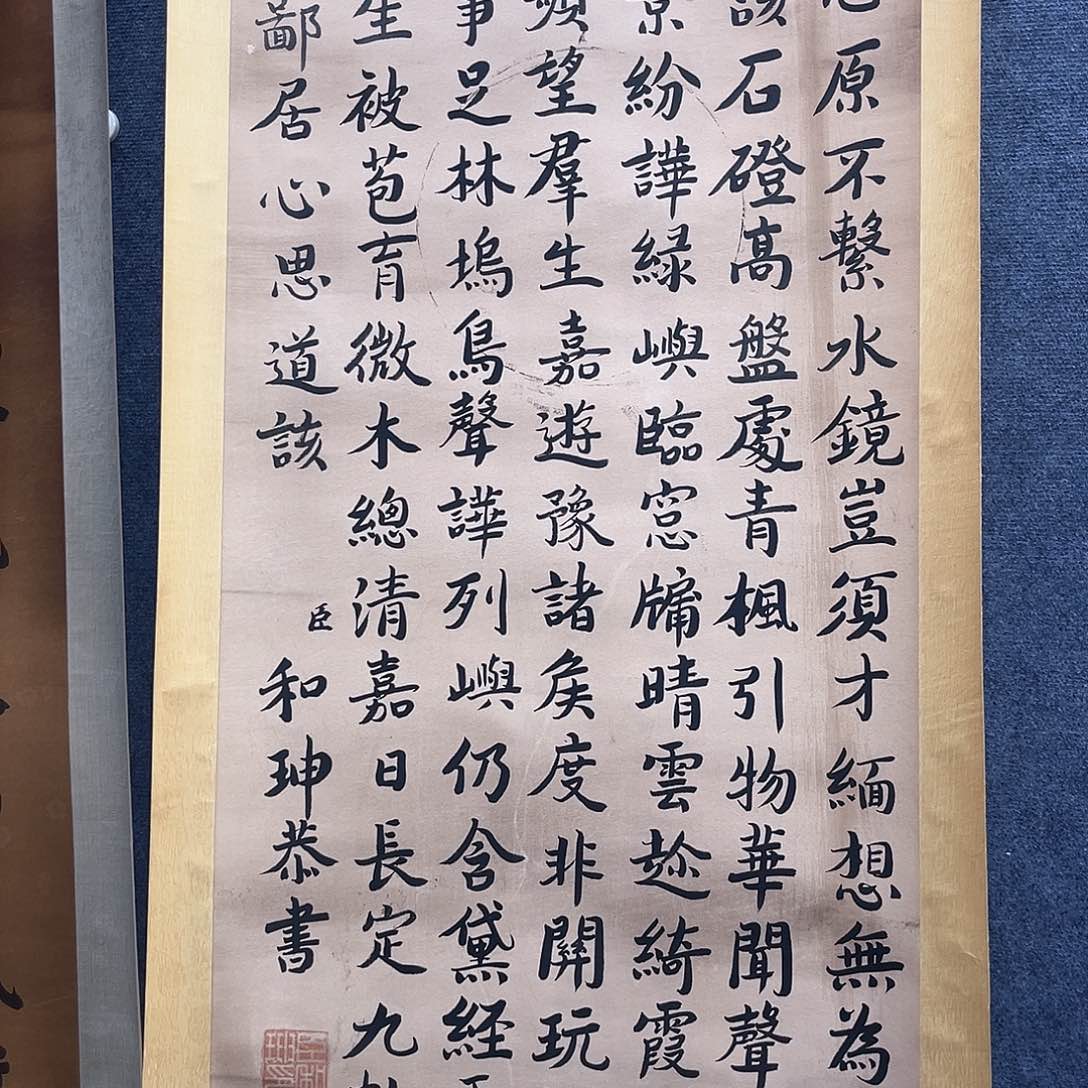 原不繫水鏡豈須才緬想無為
石磴高盤處青楓引物華聞聲
紛譁綠嶼臨窓牖晴雲趂綺霞
望羣生嘉遊豫諸侯度非關玩
足林塢鳥聲譁列嶼仍含黛經
生被苞育微木總清嘉日長定九
鄙居心思道該
臣和珅恭書